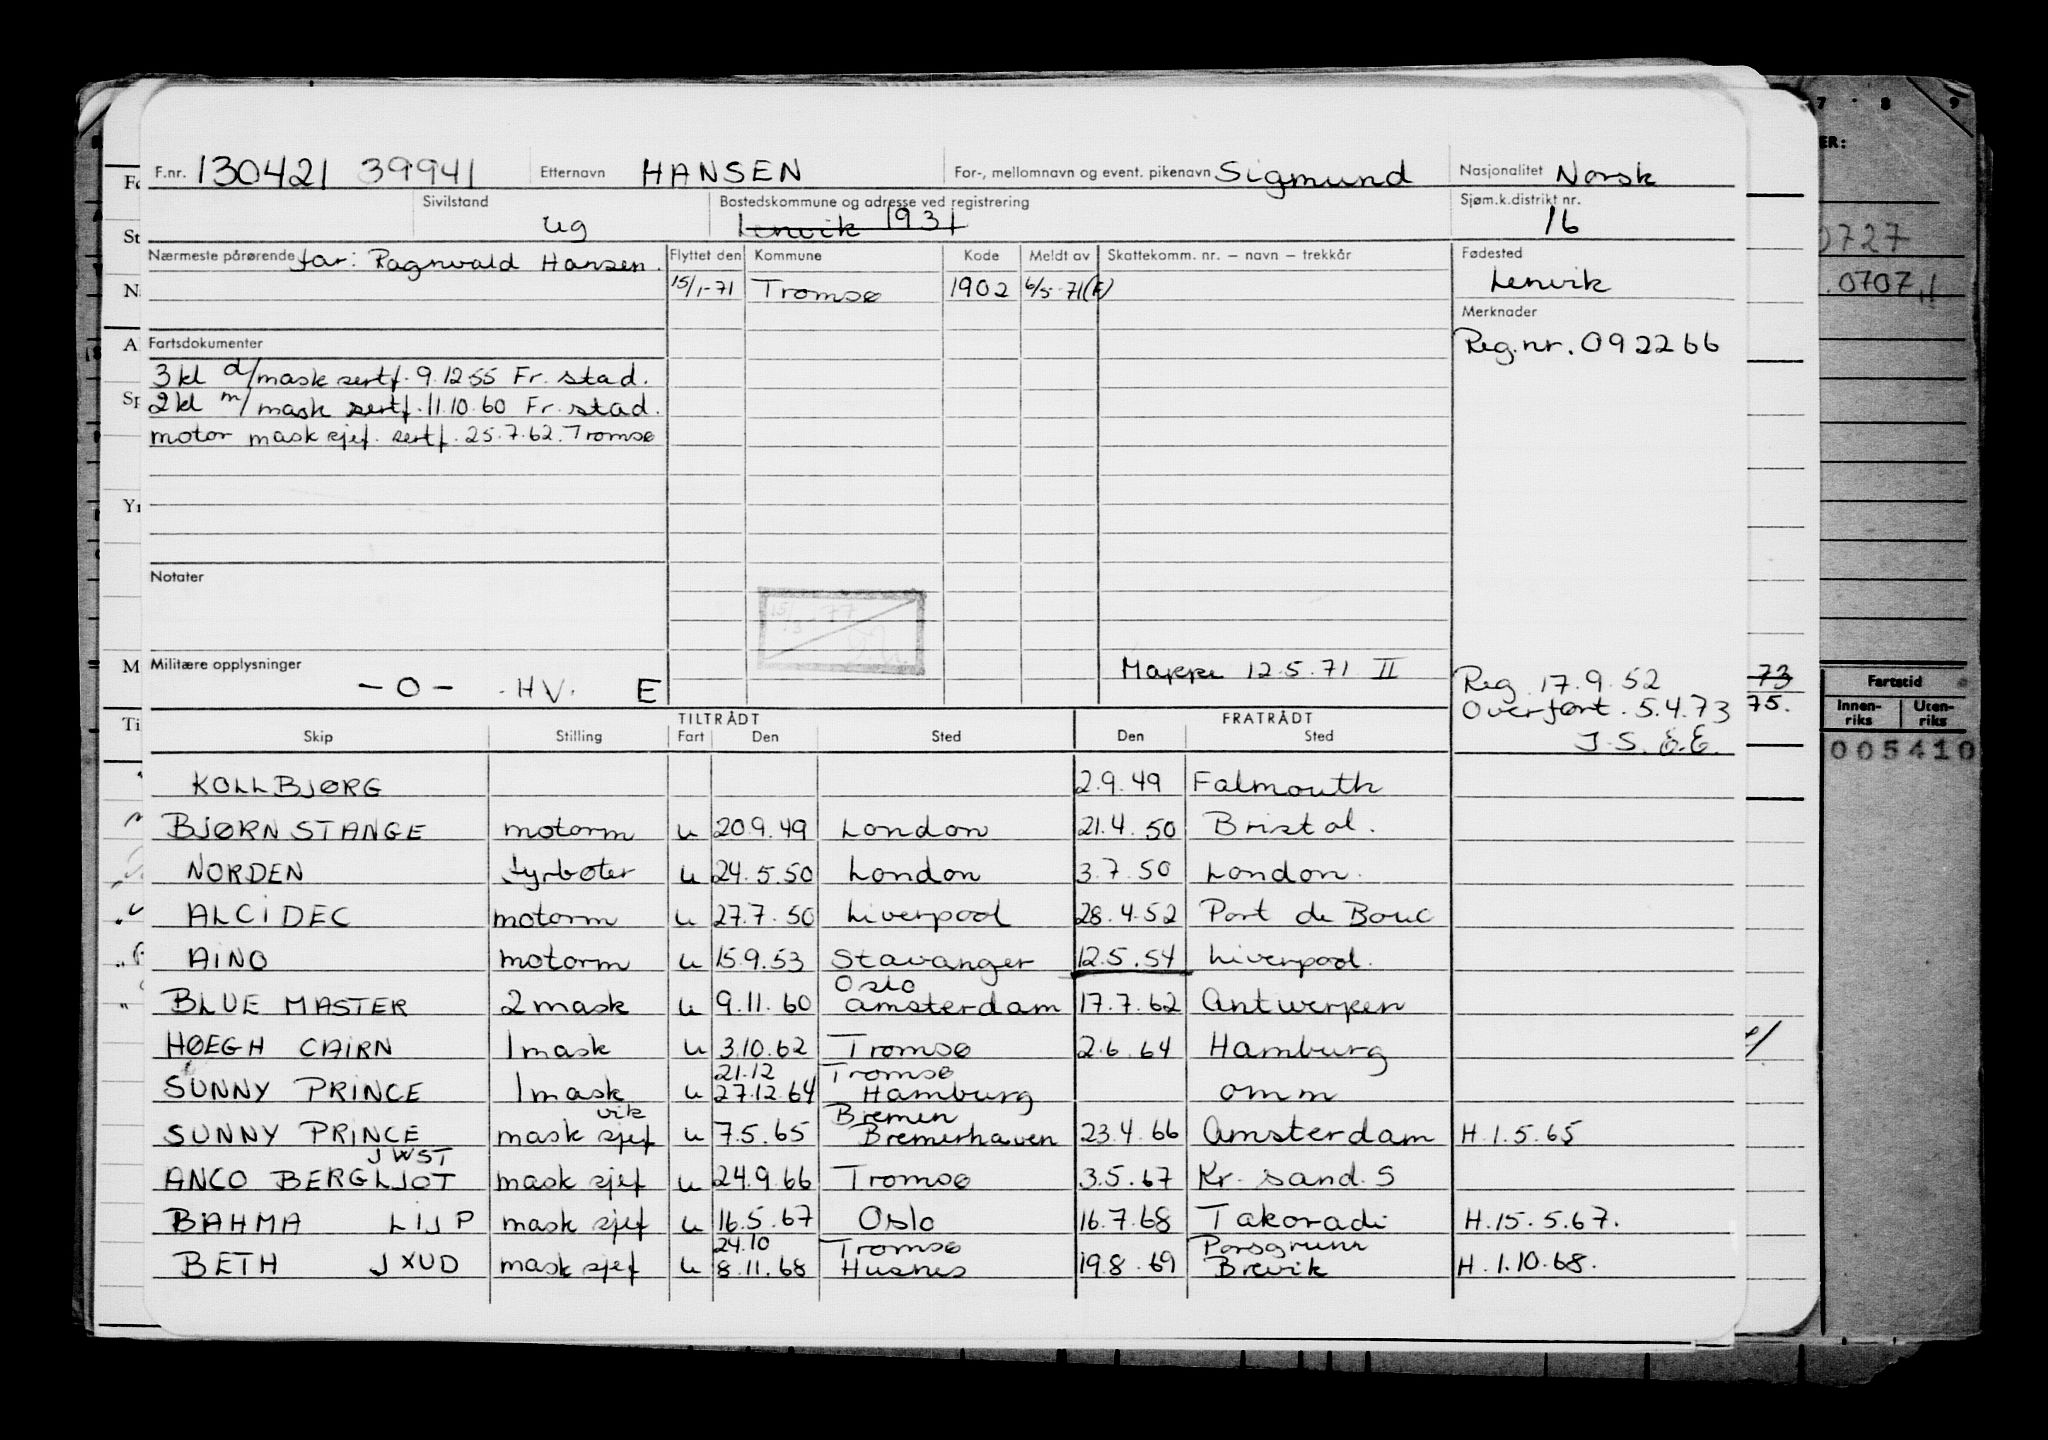 F.nr. 130421 39941 Etternavn HANSEN For-, mellomnavn og event. pikenavn Sigmund Nasjonalitet Norsk
Sivilstand ug Bostedskommune og adresse ved registrering Lenvik 1931 Sjøm.k.distrikt nr. 16
Nærmeste pårørende far: Ragnvald Hansen. Flyttet den Kommune Kode Meldt av Skattekomm. nr. – navn – trekkår Fødested
15/1-71 Tromsø 1902 6/5-71(F) Lenvik
Merknader
Fartsdokumenter Reg.nr. 092266
3 kl d/mask sertf. 9.12 55 Fr. stad.
2 kl m/mask sertf. 11.10.60 Fr. stad.
motor mask sjef. sertf. 25.7.62. Tromsø
Notater
15/3-77
Militære opplysninger -0- HV. E Mappe 12.5.71 II Reg. 17.9.52
Overført. 5.4.73
J.S. E.E.
TILTRÅDT FRATRÅDT
Skip Stilling Fart Den Sted Den Sted
KOLLBJØRG 2.9.49 Falmouth
BJØRN STANGE motorm u 20.9.49 London 21.4.50 Bristol.
NORDEN fyrbøter u 24.5.50 London 3.7.50 London.
ALCIDEC motorm u 27.7.50 Liverpool 28.4.52 Port de Bouc
AINO motorm u 15.9.53 Stavanger 12.5.54 Liverpool.
Oslo
BLUE MASTER 2 mask u 9.11.60 Amsterdam 17.7.62 Antwerpen
HØEGH CAIRN 1 mask u 3.10.62 Tromsø 2.6.64 Hamburg
21.12 Tromsø
SUNNY PRINCE 1 mask u 27.12.64 Hamburg omm
vik Bremen
SUNNY PRINCE mask sjef u 7.5.65 Bremerhaven 23.4.66 Amsterdam H.1.5.65
JWST
ANCO BERGLJOT mask sjef u 24.9.66 Tromsø 3.5.67 Kr. sand. S
BAHMA LIJP mask sjef u 16.5.67 Oslo 16.7.68 Takoradi H.15.5.67.
24.10 Tromsø Porsgrunn
BETH JXUD mask sjef u 8.11.68 Husnes 19.8.69 Brevik H.1.10.68.
7 8 9
ER:
0727
0707
73
75.
Fartstid
Innen-riks Uten-riks
005410